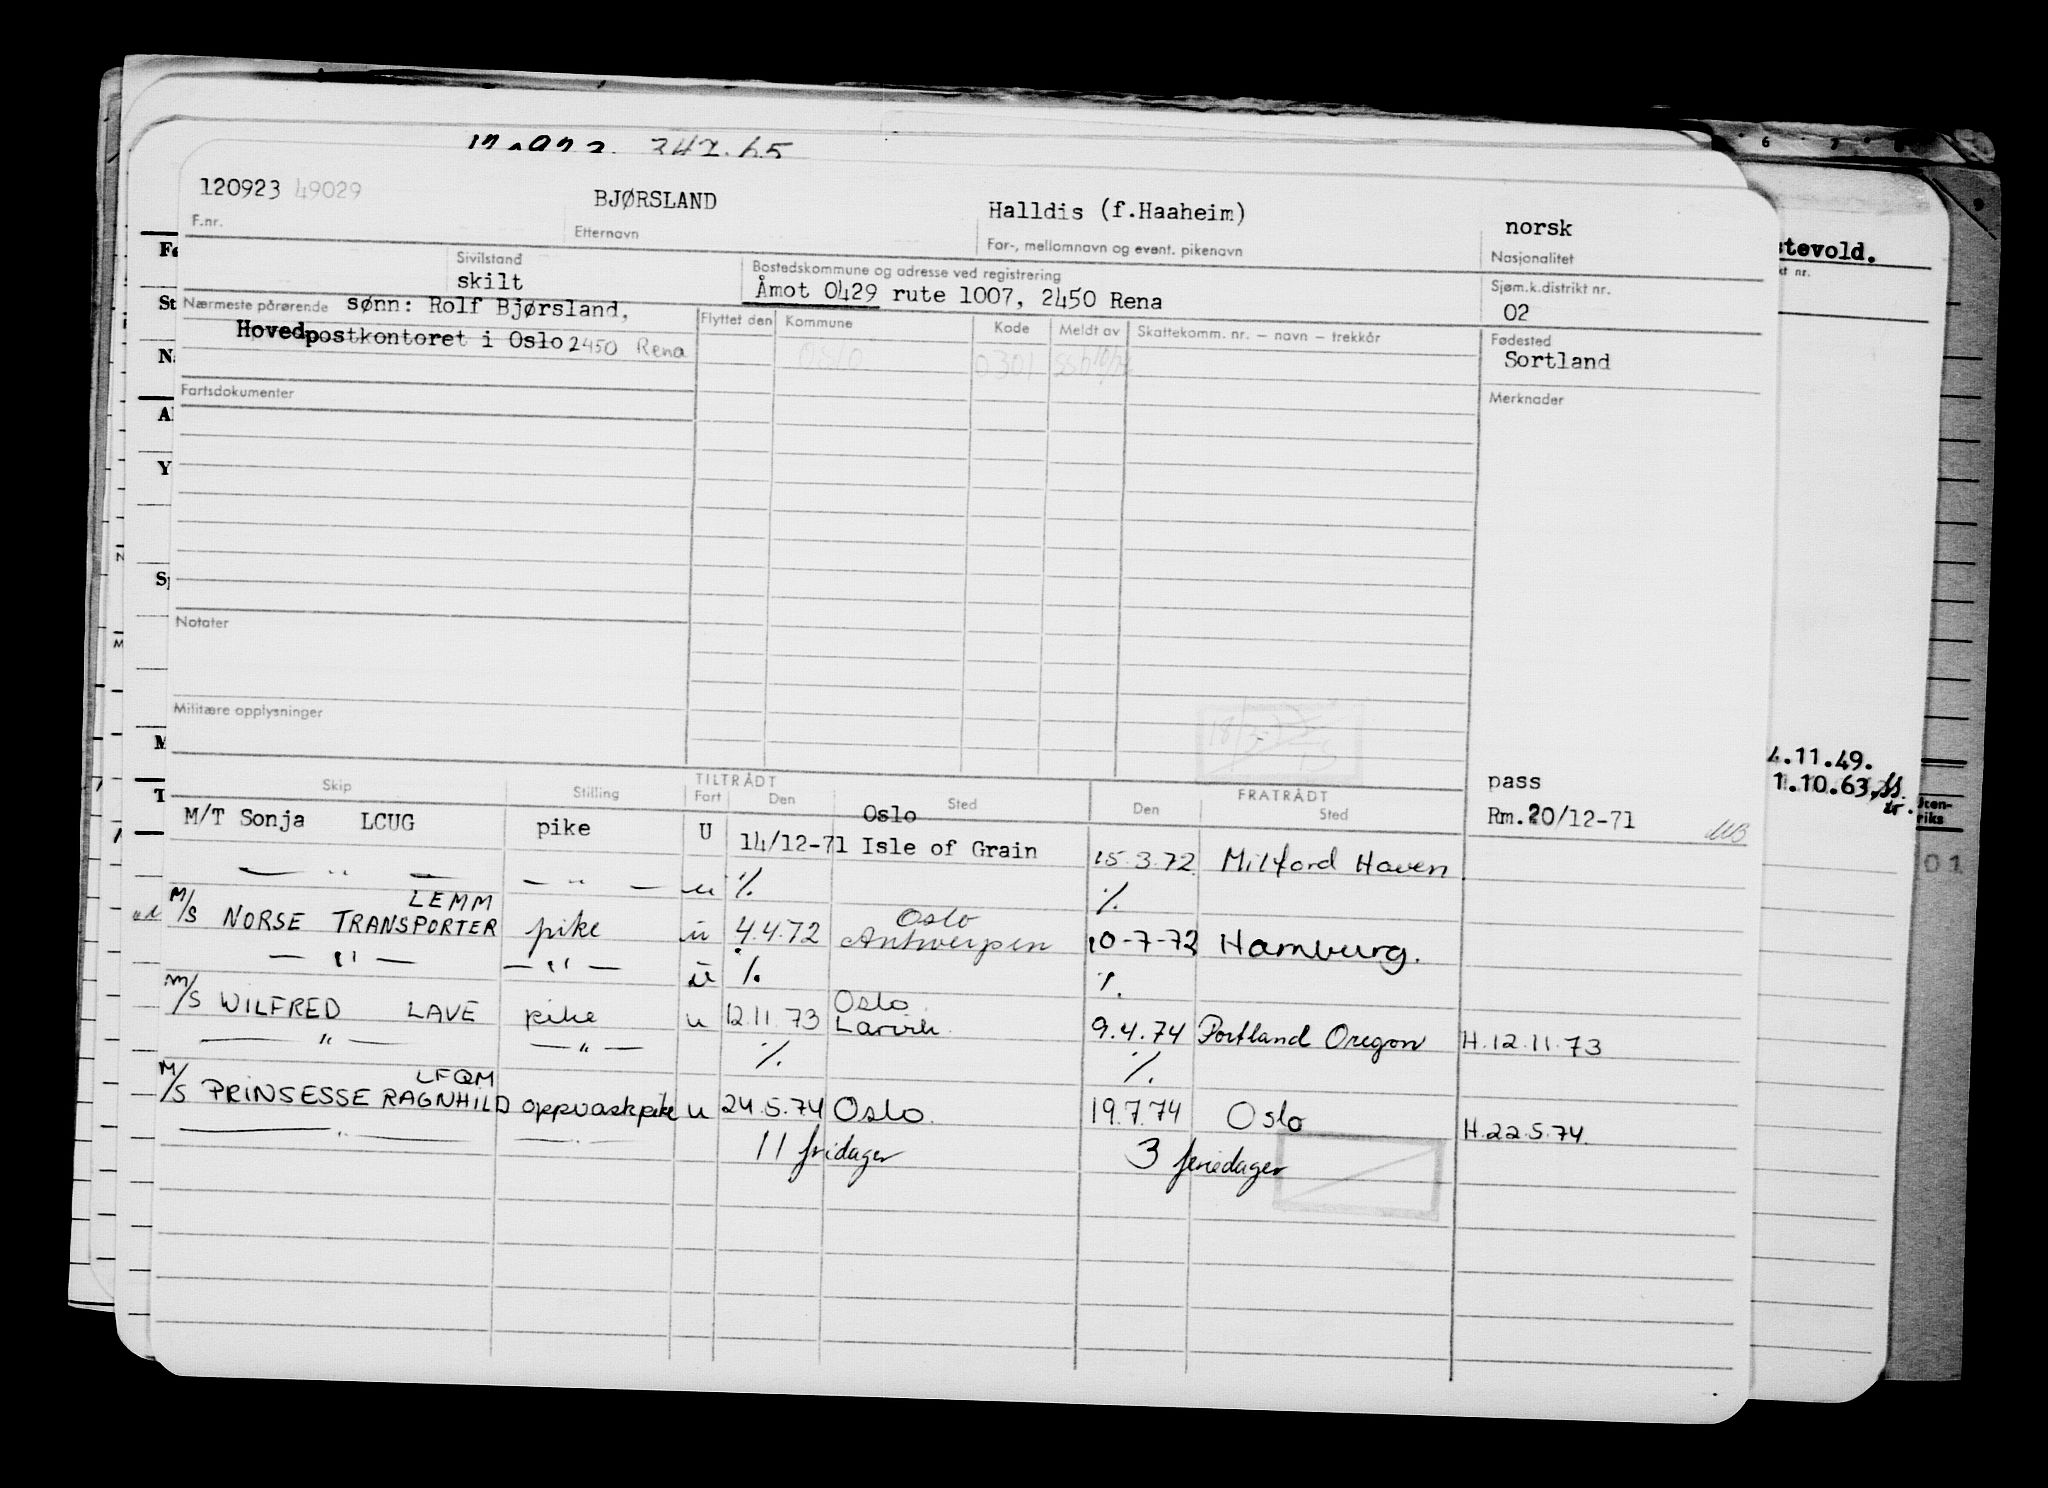 242.65
120923 49029 BJØRSLAND Halldis (f.Haaheim) norsk
F.nr. Etternavn For-, mellomnavn og event. pikenavn Nasjonalitet
Sivilstand Bostedskommune og adresse ved registrering Sjøm.k.distrikt nr.
skilt Åmot 0429 rute 1007, 2450 Rena 02
Nærmeste pårørende sønn: Rolf Bjørsland, Flyttet den Kommune Kode Meldt av Skattekomm. nr. – navn – trekkår Fødested
Hovedpostkontoret i Oslo 2450 Rena Oslo 0301 Sortland
Fartsdokumenter Merknader
Notater
Militære opplysninger
TILTRÅDT FRATRÅDT
Skip Stilling Fart Den Sted Den Sted
pass
M/T Sonja LCUG pike U 14/12-71 Oslo Isle of Grain 15.3.72 Milford Haven Rm.20/12-71 MB
— " — — " — u % %
M/S NORSE TRANSPORTER LEMM pike u 4.4.72 Oslo Antwerpen 10-7-72 Hamburg.
— " — — " — u % %
M/S WILFRED LAVE pike u 12.11.73 Oslo Larvik 9.4.74 Portland Oregon H.12.11.73
— " — — " — % %
M/S PRINSESSE RAGNHILD LFQM oppvaskpike u 24.5.74 Oslo. 19.7.74 Oslo H.22.5.74.
— " — — " — 11 fridager 3 feriedager
stevold.
kt nr.
4.11.49.
1.10.63
Uten-
riks
01